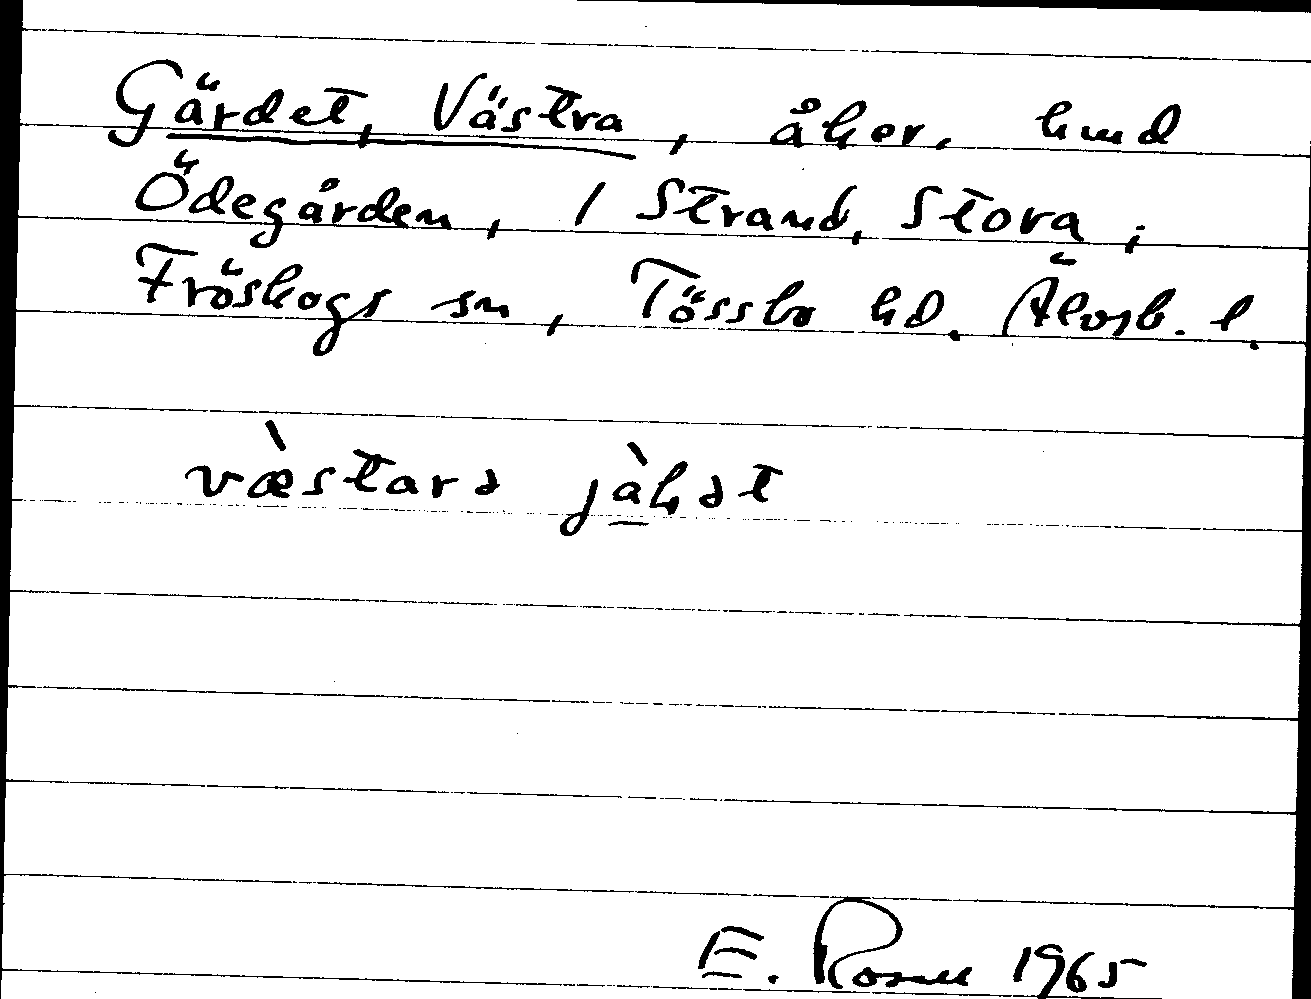 Gärdet, Västra, åker, hmd
Ödegården, 1 Strand, Stora,
Fröskogs sn, Tössbo hd. Älvsb. l.
væ̀starə jàkət
E. 1965